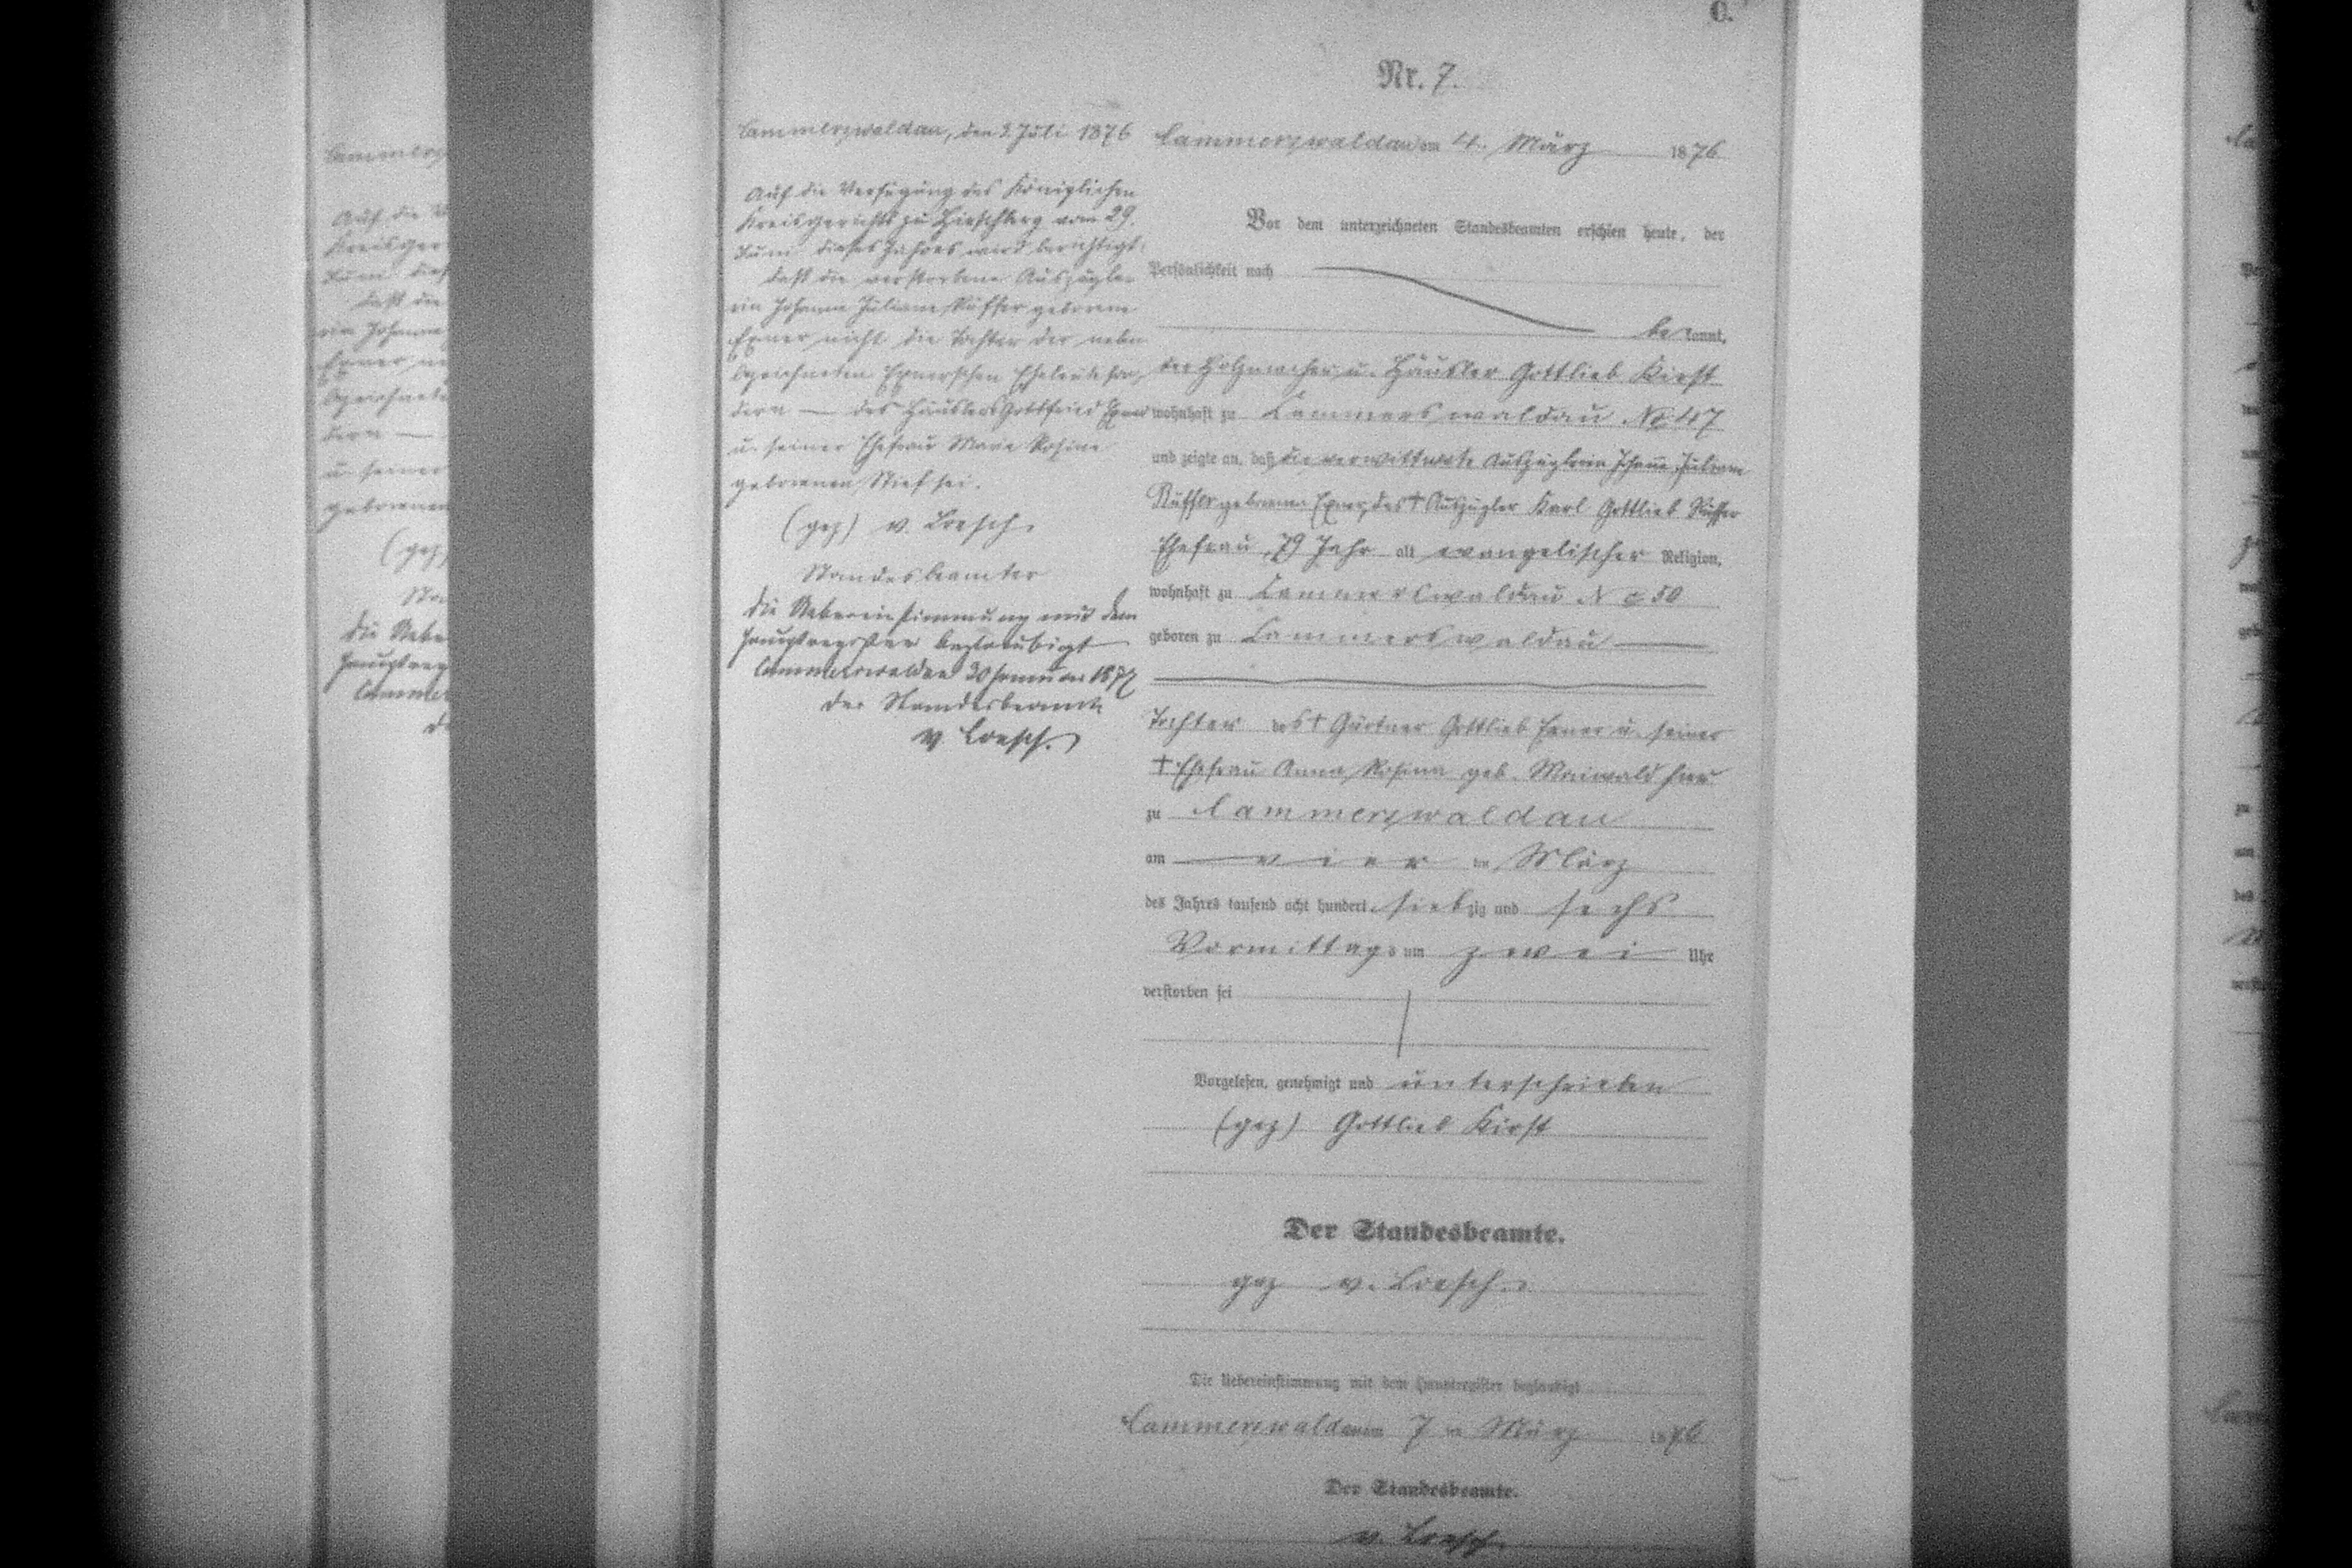 C.
Nr. 7.
Cammerswaldau am 4. März 1876
Vor dem unterzeichneten Standesbeamten erschien heute, der
Persönlichkeit nach
bekannt,
der Holzmacher u. Häusler Gottlieb Kirst
wohnhaft zu Cammerswaldau No 47
und zeigte an, daß die verwittwete Auszüglerin Johanne Juliane
Rüffer geborene Exner, des † Auszügler Karl Gottlieb Rüffer
Ehefrau, 79 Jahr alt evangelischer Religion,
wohnhaft zu Cammerswaldau No 50
geboren zu Cammerswaldau
Tochter des † Gärtner Gottlieb Exner u. seiner
† Ehefrau Anna Rosina geb. Maiwald hier
zu Cammerswaldau
am vier ten März
des Jahres tausend acht hundert siebzig und sechs
Vormittags um zwei Uhr
verstorben sei
Vorgelesen, genehmigt und unterschrieben
(gez) Gottlieb Kirst
Der Standesbeamte.
gez v. Loesch.
Die Uebereinstimmung mit dem Hauptregister beglaubigt
Cammerswaldau am 7 ten März 1876
Der Standesbeamte.
v. Loesch.
Cammerswaldau, den 3. Juli 1876
Auf die Verfügung des Königlichen
Kreisgerichts zu Hirschberg vom 29.
Juni dieses Jahres wird berichtigt:
daß die verstorbene Auszügle-
rin Johanne Juliane Rüffer geborene
Exner nicht die Tochter der neben
bezeichneten Exnerschen Eheleute son-
dern — des Häuslers Gottfried Exner
u. seiner Ehefrau Maria Rosine
geborenen Stief sei.
(gez) v. Loesch.
Standesbeamter
Die Uebereinstimmung mit dem
Hauptregister beglaubigt
Cammerswaldau 30 Januar 1877
Der Standesbeamte
v. Loesch.